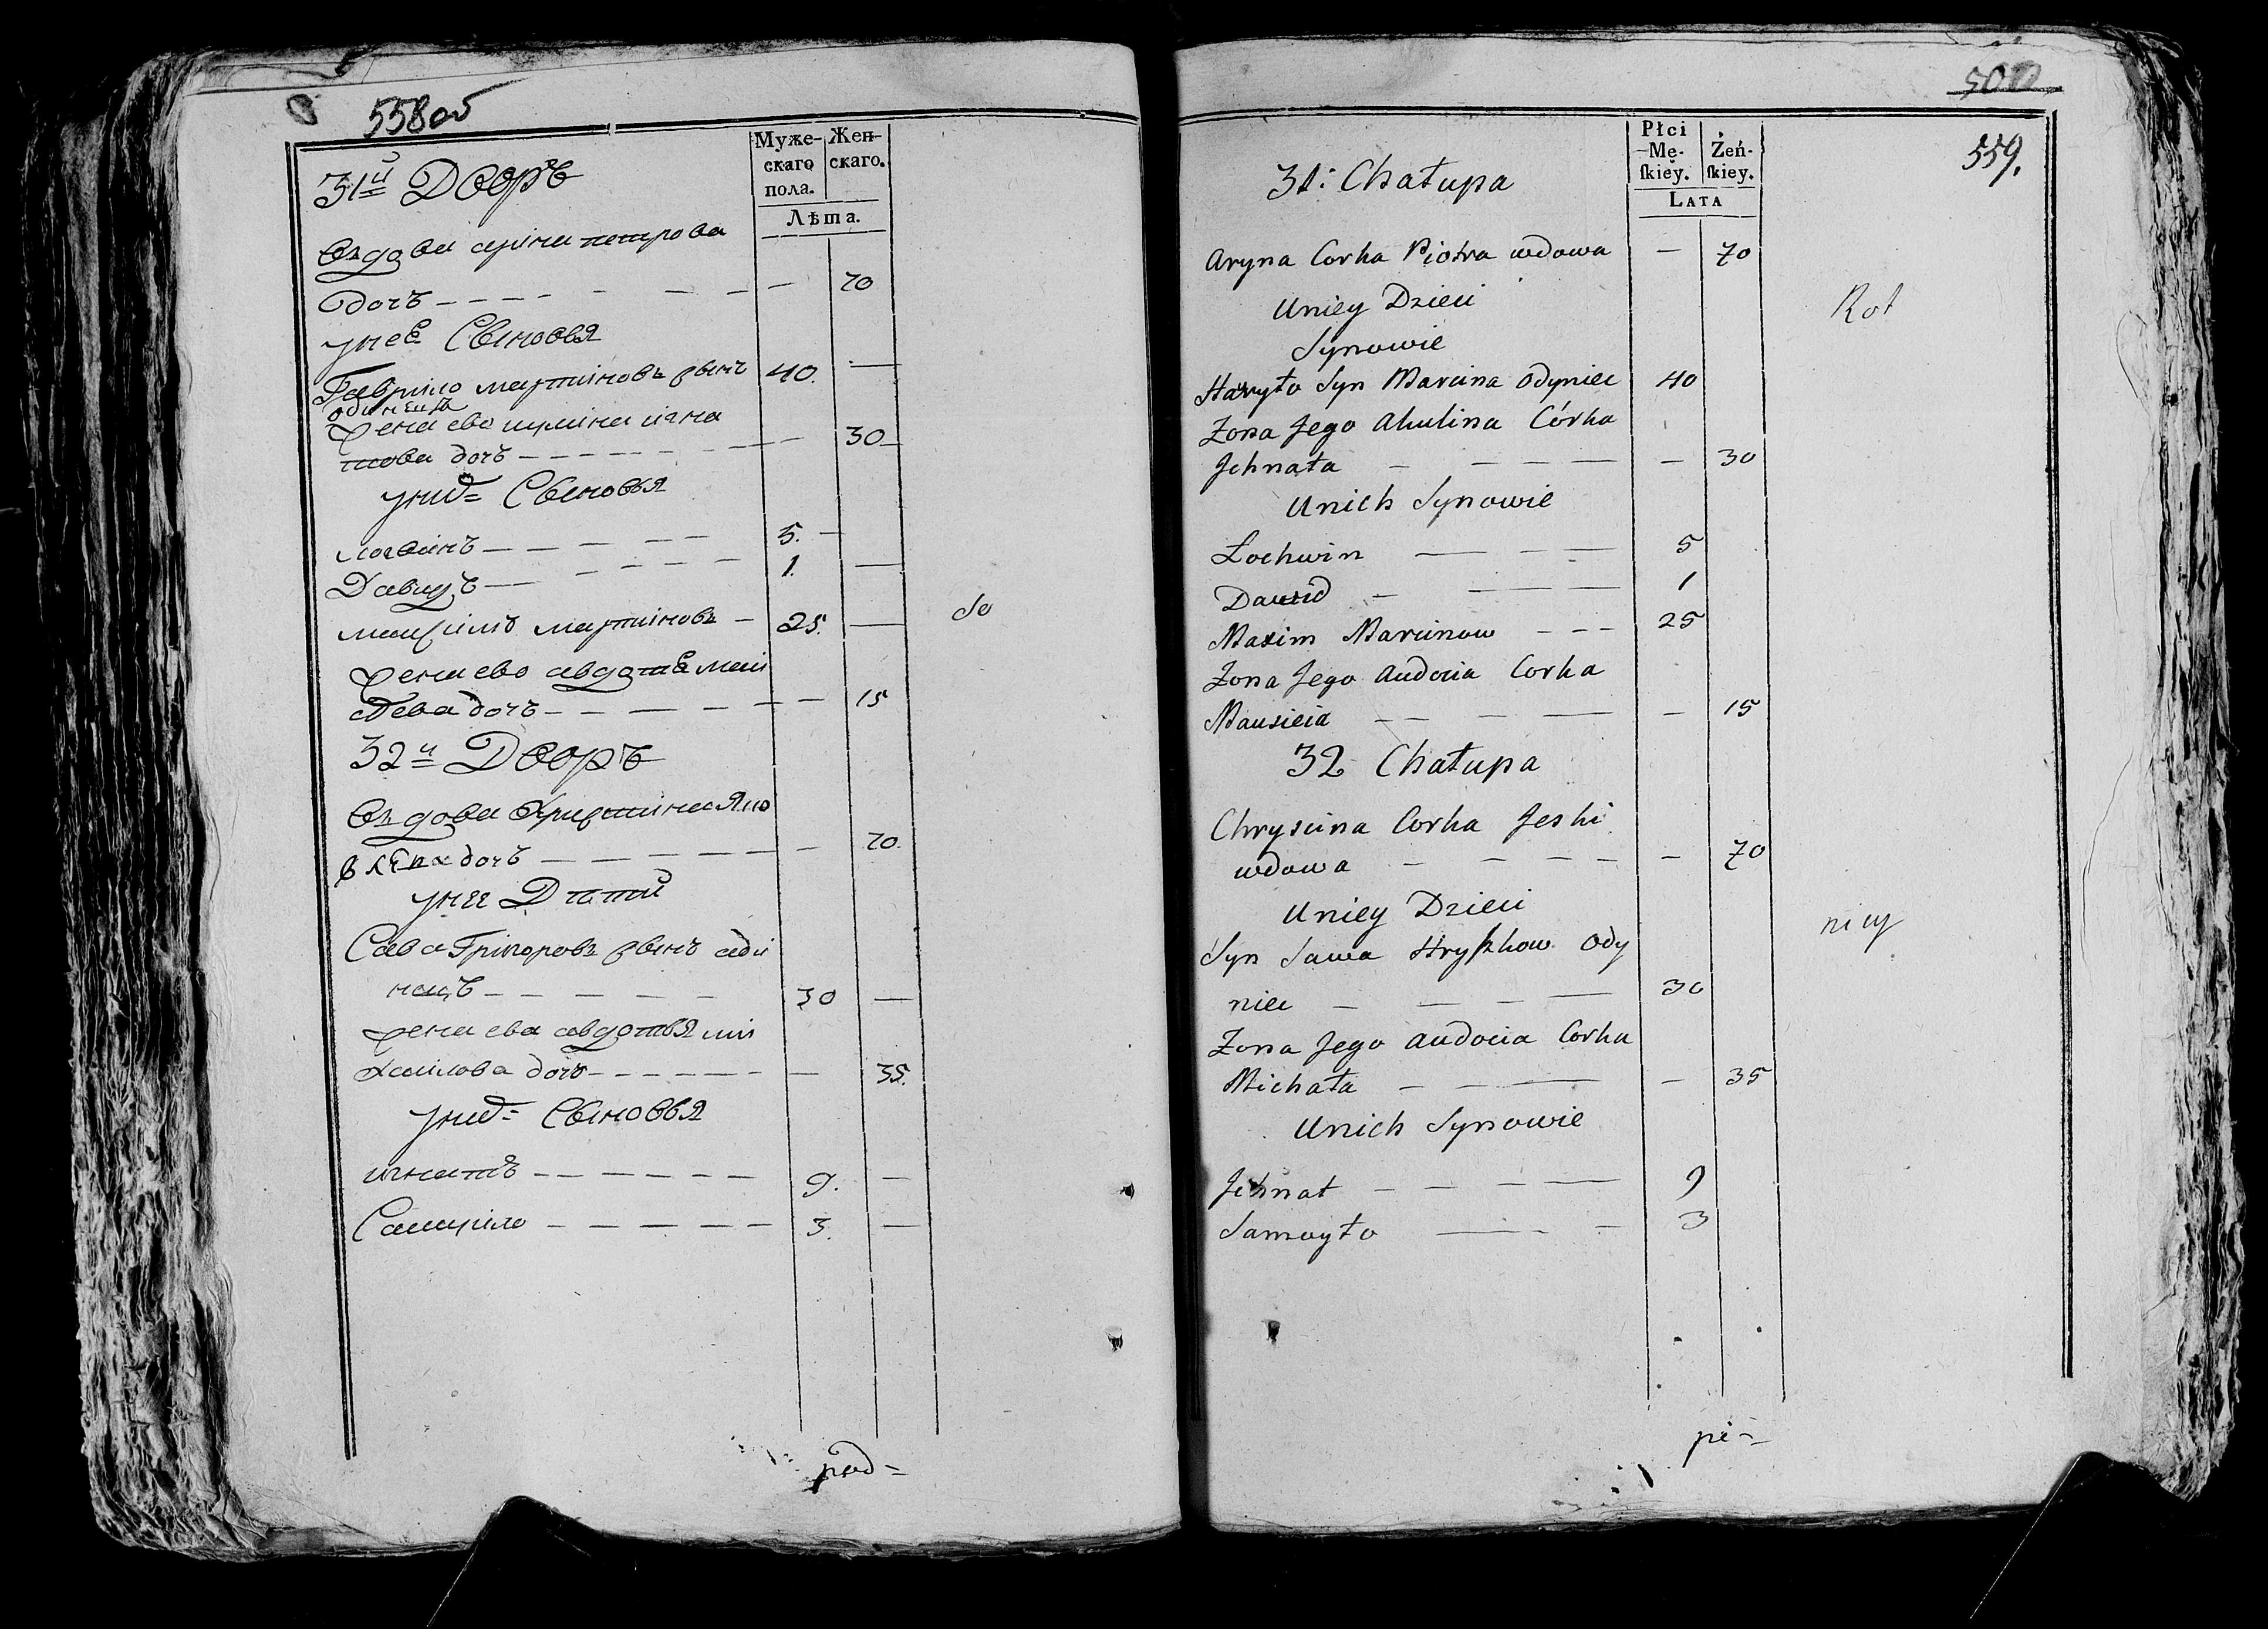 558 об
Муже-
скаго
пола.
Жен-
скаго.
Лѣта.
31й Дворъ
Вздова аріна петрова
дочь - - - - - - - - 70
унеѣ Сыновья
Гаврило мартиновъ сынъ 40. —
одинецъ
жена ево кулина игна
това дочь - - - - - - - - 30
унихъ Сыновья
логвинъ - - - - - 5. —
Давидъ - - - - - 1. —
максимъ мартиновъ - 25. —
до
жена ево авдотьѣ маи
сѣева дочь - - - - - - - 15
32й Дворъ
Вздова Христина Яко
влева дочь - - - - - - 70.
унее Дѣтей
Сава Григоровъ сынъ оди
нецъ - - - - - 30 —
жена ева авдотья ми
хаилова дочь - - - - - - - 35.
унихъ Сыновья
игнатъ - - - - - - 9. —
Самуило - - - - - - 3. —
559.
Płci
Mę-
skiey.
Żeń-
skiey.
LATA
31: Chałupa
Aryna Corka Piotra wdowa — 70
Uniey Dzieci
Rot
Synowie
Hawryło Syn Marcina Odyniec 40
Zona Jego Akulina Córka
Jchnata - - - - - 30
Unich Synowie
Łochwin - - - 5
Dawid - - - - 1
Maxim Marcinow - - - 25
Zona Jego Audocia Corka
Mausieia - - - - - 15
32 Chałupa
Chryscina Corka Jeski
wdowa - - - - - 70
Uniey Dzieci
nicy
Syn Sawa Hryszkow Ody
niec - - - - 30
Zona Jego Audocia Corka
Michała - - - - 35
Unich Synowie
Jchnat - - - - 9
Samuyło - - - 3